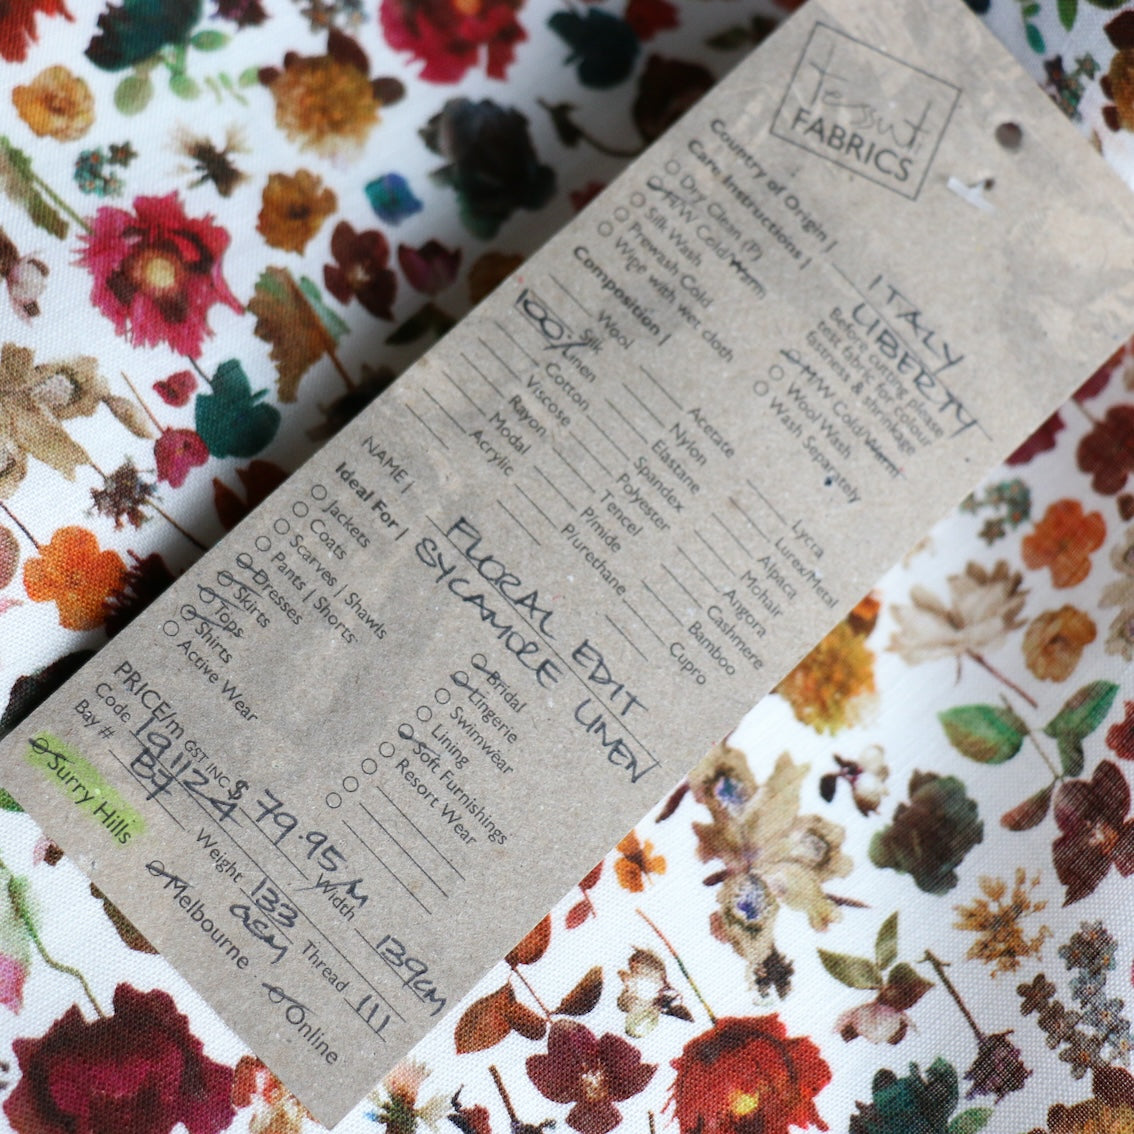 tessuti
FABRICS
Country of Origin | ITALY
LIBERTY
Care Instructions |
Dry Clean (P)
H/W Cold/Warm
Silk Wash
Prewash Cold
Wipe with wet cloth
Before cutting please
test fabric for colour
fastness & shrinkage
M/W Cold/Warm
Wool Wash
Wash Separately
Composition |
Wool
Silk
100% Linen
Cotton
Viscose
Rayon
Modal
Acrylic
Acetate
Nylon
Elastane
Spandex
Polyester
Tencel
P/mide
P/urethane
Lycra
Lurex/Metal
Alpaca
Mohair
Angora
Cashmere
Bamboo
Cupro
NAME | FLORAL EDIT
SYCAMORE LINEN
Ideal For |
Jackets
Coats
Scarves | Shawls
Pants | Shorts
Dresses
Skirts
Tops
Shirts
Active Wear
Bridal
Lingerie
Swimwear
Lining
Soft Furnishings
Resort Wear
PRICE/m GST INC $ 79.95/M
Code 191124 Width 139cM
Bay # B7 Weight 133 GSM Thread 111
Surry Hills Melbourne Online